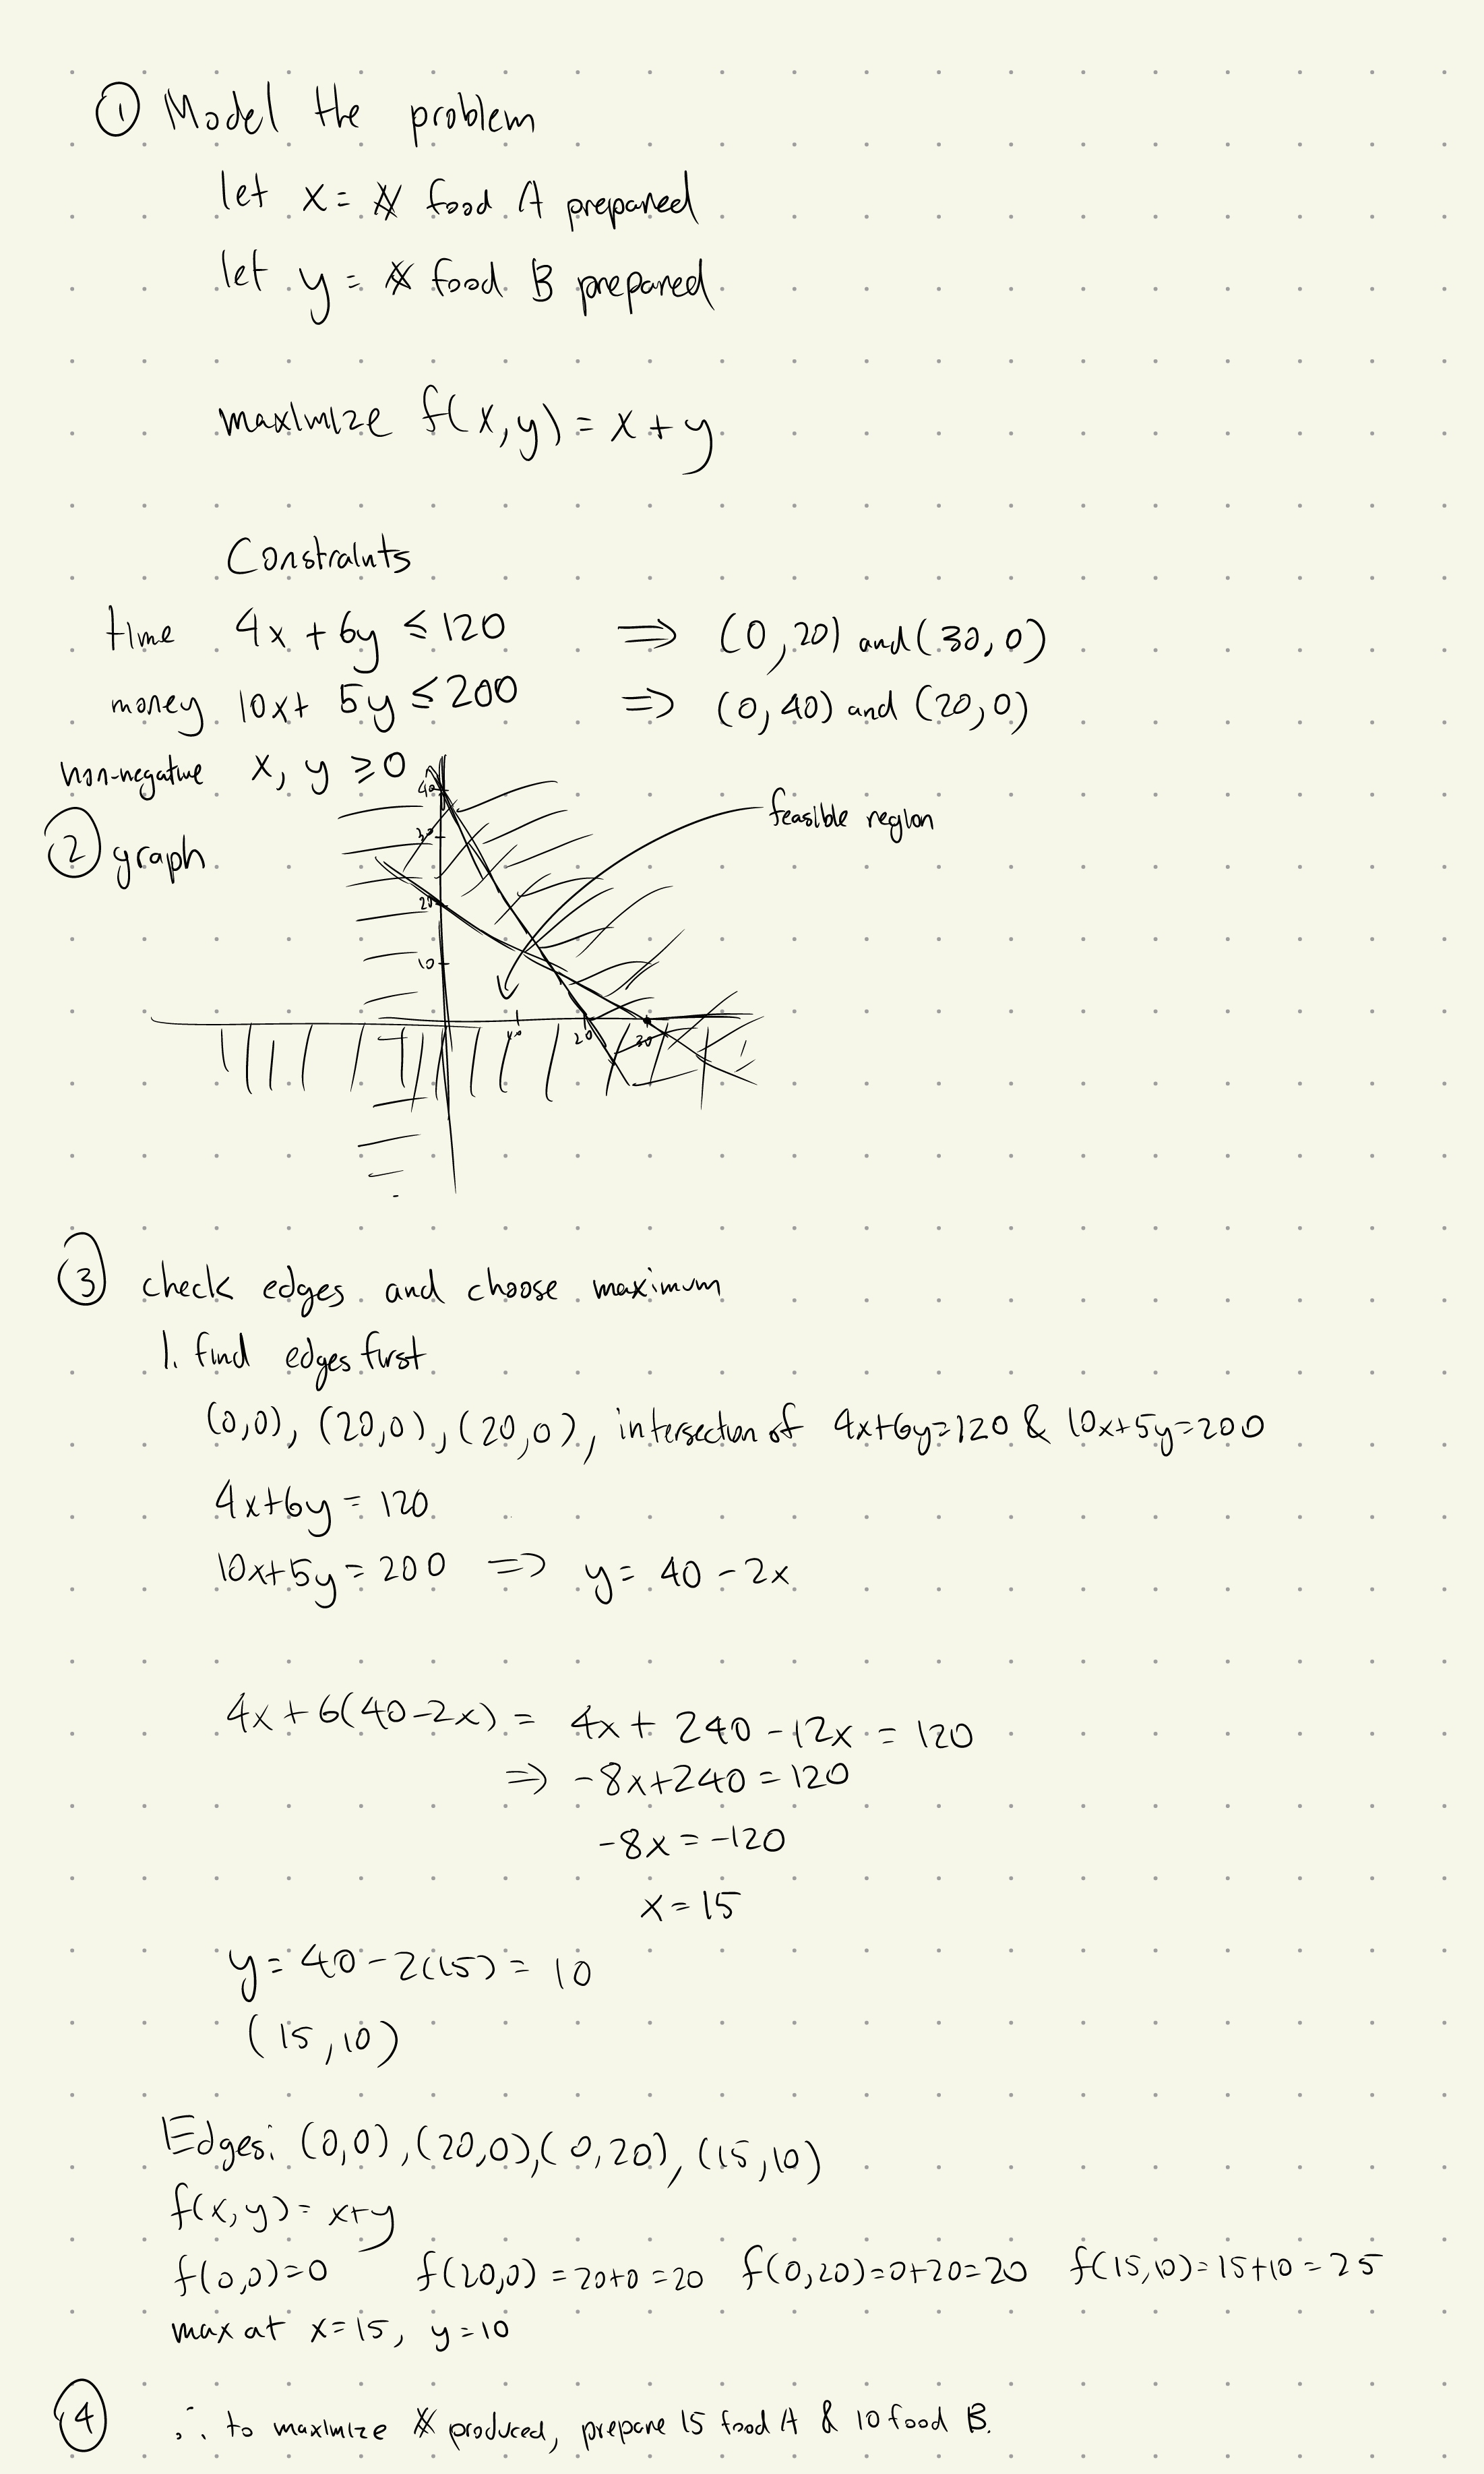 ① Model the problem
let x = # food A prepared
let y = # food B prepared
maximize f(x,y) = x + y
Constraints
time 4x + 6y ≤ 120 ⇒ (0,20) and (30,0)
money 10x + 5y ≤ 200 ⇒ (0,40) and (20,0)
non-negative x, y ≥ 0
② graph
feasible region
40
30
20
10
10 20 30
③ check edges and choose maximum
1. find edges first
(0,0), (20,0), (20,0), intersection of 4x+6y=120 & 10x+5y=200
4x+6y = 120
10x+5y = 200 ⇒ y = 40 - 2x
4x + 6(40-2x) = 4x + 240 - 12x = 120
⇒ -8x+240 = 120
-8x = -120
x = 15
y = 40 - 2(15) = 10
(15,10)
Edges: (0,0), (20,0), (0,20), (15,10)
f(x,y) = x+y
f(0,0)=0 f(20,0) = 20+0 = 20 f(0,20)=0+20=20 f(15,10)=15+10=25
max at x=15, y=10
④ ∴ to maximize # produced, prepare 15 food A & 10 food B.